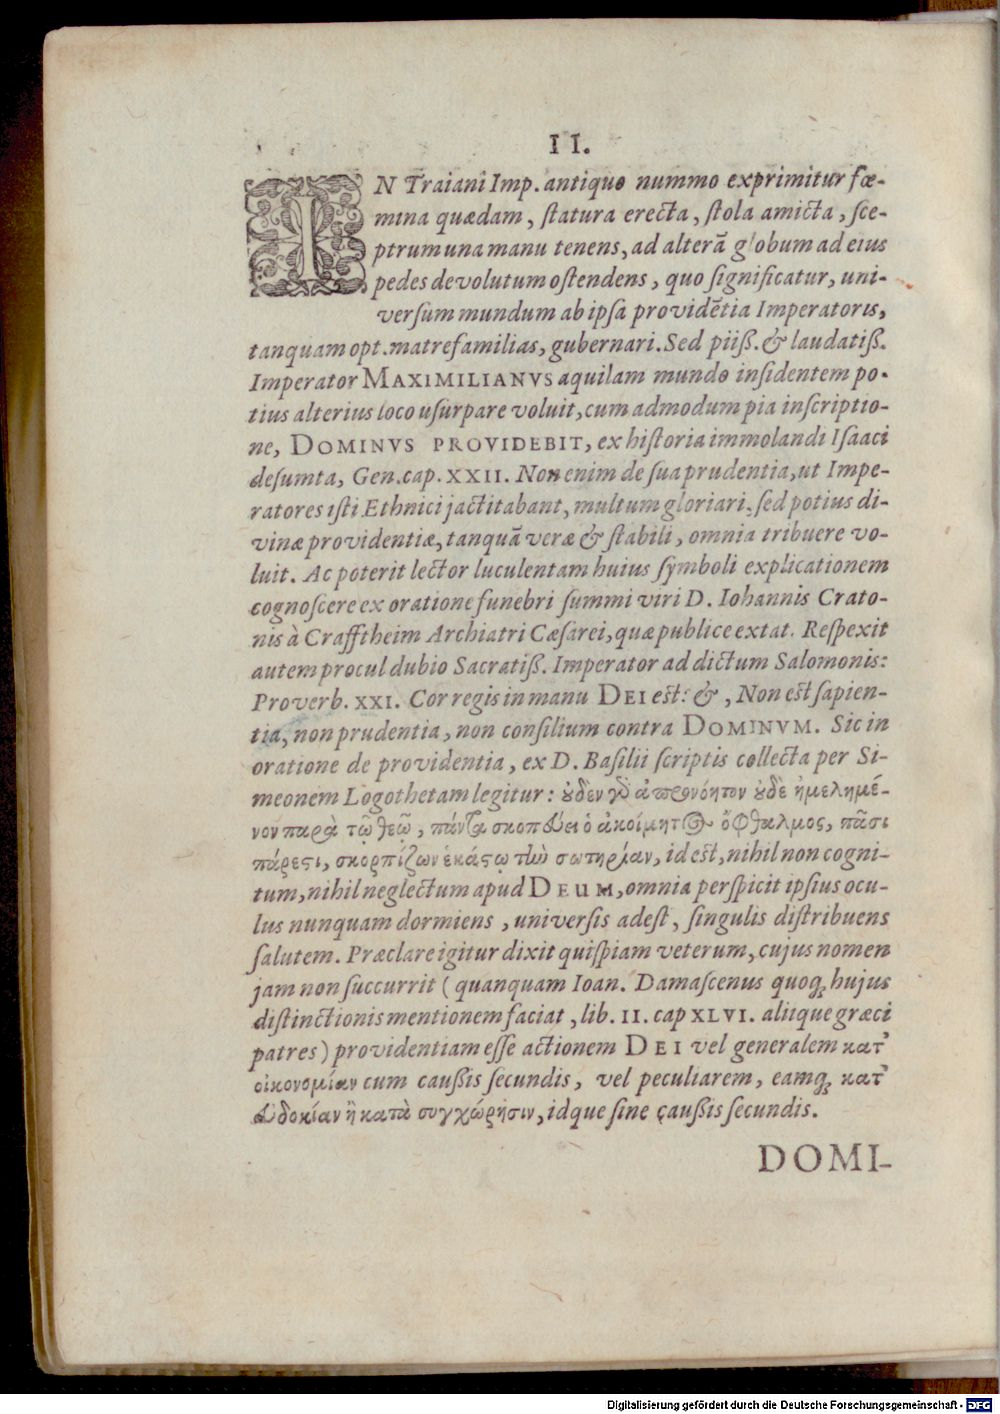 II.
IN Traiani Imp. antiquo nummo exprimitur fœ-
mina quædam, ſtatura erecta, ſtola amicta, ſce-
ptrum una manu tenens, ad alterã globum ad eius
pedes devolutum oſtendens, quo ſignificatur, uni-
verſum mundum ab ipſa providẽtia Imperatoris,
tanquam opt. matrefamilias, gubernari. Sed piiß. & laudatiß.
Imperator MAXIMILIANVS aquilam mundo inſidentem po-
tius alterius loco uſurpare voluit, cum admodum pia inſcriptio-
ne, DOMINVS PROVIDEBIT, ex hiſtoria immolandi Iſaaci
deſumta, Gen. cap. XXII. Non enim de ſua prudentia, ut Impe-
ratores iſti Ethnici jactitabant, multum gloriari, ſed potius di-
vinæ providentiæ, tanquã veræ & ſtabili, omnia tribuere vo-
luit. Ac poterit lector luculentam huius ſymboli explicationem
cognoſcere ex oratione funebri ſummi viri D. Iohannis Crato-
nis à Crafftheim Archiatri Cæſarei, quæ publice extat. Reſpexit
autem procul dubio Sacratiß. Imperator ad dictum Salomonis:
Proverb. XXI. Cor regis in manu DEI est: &, Non est ſapien-
tia, non prudentia, non conſilium contra DOMINVM. Sic in
oratione de providentia, ex D. Baſilii ſcriptis collecta per Si-
meonem Logothetam legitur: ȣ̓δὲν γὰρ ἀπρονόητον ȣ̓δὲ ἠμελημέ-
νον παρὰ τῷ θεῷ, πάντα σκοπεύει ὁ ἀκοίμητος ὀφθαλμος, πᾶσι
πάρεϛι, σκορπίζων ἑκάϛῳ τὴν σωτηρίαν, id est, nihil non cogni-
tum, nihil neglectum apud DEUM, omnia perſpicit ipſius ocu-
lus nunquam dormiens, univerſis adeſt, ſingulis diſtribuens
ſalutem. Præclare igitur dixit quiſpiam veterum, cujus nomen
jam non ſuccurrit (quanquam Ioan. Damaſcenus quoq; hujus
diſtinctionis mentionem faciat, lib. II. cap XLVI. aliique græci
patres) providentiam eſſe actionem DEI vel generalem κατ᾽
οἰκονομίαν cum cauſsis ſecundis, vel peculiarem, eamq; κατ᾽
εὐδοκίαν ἢ κατὰ συγχώρησιν, idque ſine cauſsis ſecundis.
DOMI-
Digitalisierung gefördert durch die Deutsche Forschungsgemeinschaft - DFG